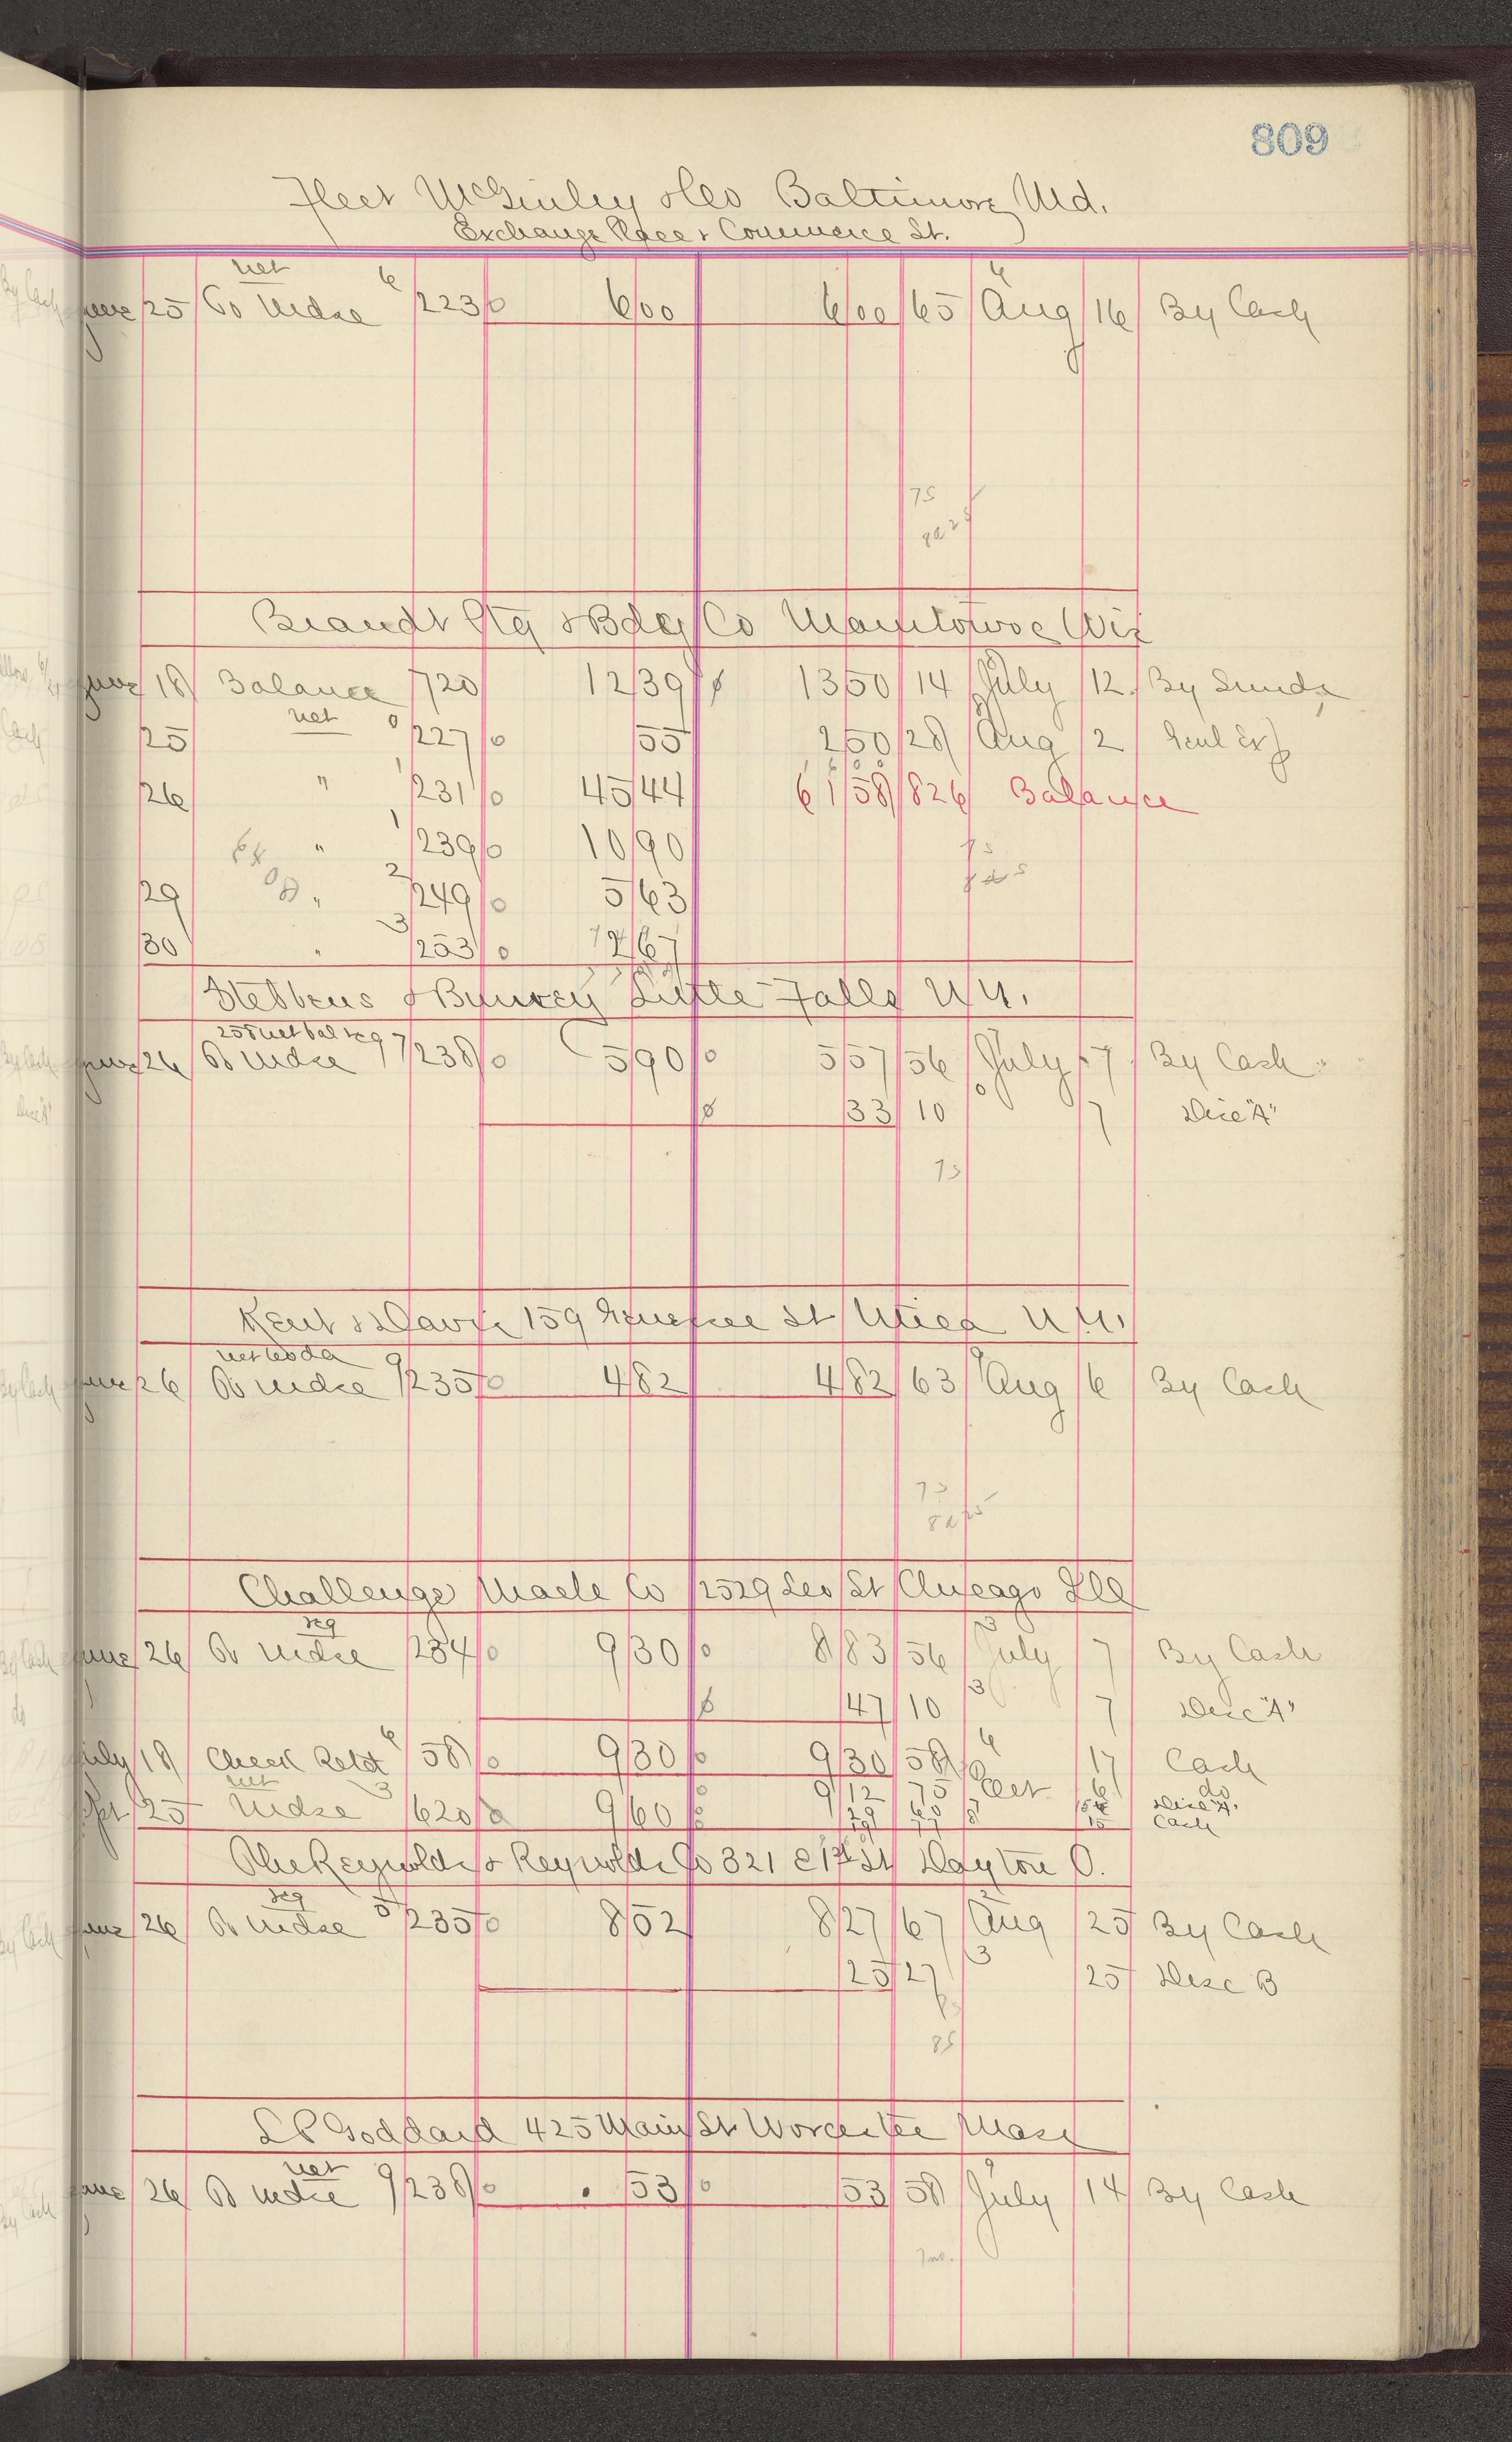 809
Fleet McGinley & Co Baltimore Md.
Exchange Place & Commerce St.
net 6 6
June 25 To Mdse 223 0 6 00 6 00 65 Aug 16 By Cash
75
Brandt Ptg & Bdg Co Manitowoc Wis
June 18 Balance 720 12 39 13 50 14 July 12 By Sunds
25 net 0 227 0 55 2 50 28 Aug 2 Genl Ex
26 " 1 231 0 45 44 61 58 826 Balance
" 1 239 0 10 90
29 " 2 249 0 5 63
30 " 3 253 0 12 67
Stebbens & Burney Little Falls N Y.
25% net bal reg 7
June 26 To Mdse 238 0 5 90 0 5 57 56 July 7 By Cash
33 10 7 Disc "A"
73
Kent & Davis 159 Genesee St Utica N Y.
9 9
June 26 To Mdse 235 0 4 82 4 82 63 Aug 6 By Cash
73
Challenge Mach Co 2529 Leo St Chicago Ill
reg 3
June 26 To Mdse 234 0 9 30 0 8 83 56 July 7 By Cash
47 10 3 7 Disc "A"
July 18 Check Retd 6 58 0 9 30 0 9 30 58 6 17 Cash
net 9 12 75 Oct 6 do
Sept 25 Mdse 3 620 0 9 60 Disc "A"
19 77 15 Cash
The Reynolds & Reynolds Co 321 E 1st St Dayton O.
reg
June 26 To Mdse 5 235 0 8 52 8 27 67 Aug 25 By Cash
25 27 3 25 Disc B
85
L P Goddard 425 Main St Worcester Mass
net 9
June 26 To Mdse 9 238 0 53 0 53 58 July 14 By Cash